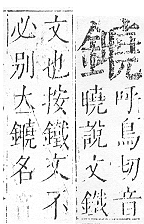 鐃
呼鳥切音
曉說文鐵
文也按鐵文不
必别大鐃名